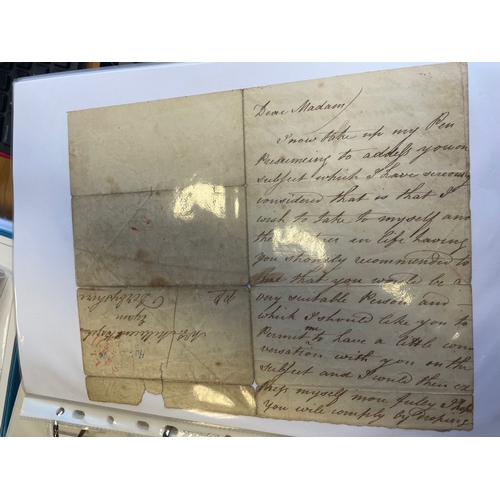 Dear Madam
I now take up my Pen
Presumeing to address you on
subject which I have seriously
considered that is that I
wish to take to myself an
in life having
you strongly recommended to
that you would be a
very suitable Person and
which I should like you to
Permit me to have a little con
versation with you on the
subject and I would then ex
myself more fuley I hope
You will comply by droping
Eyam
Derbyshire